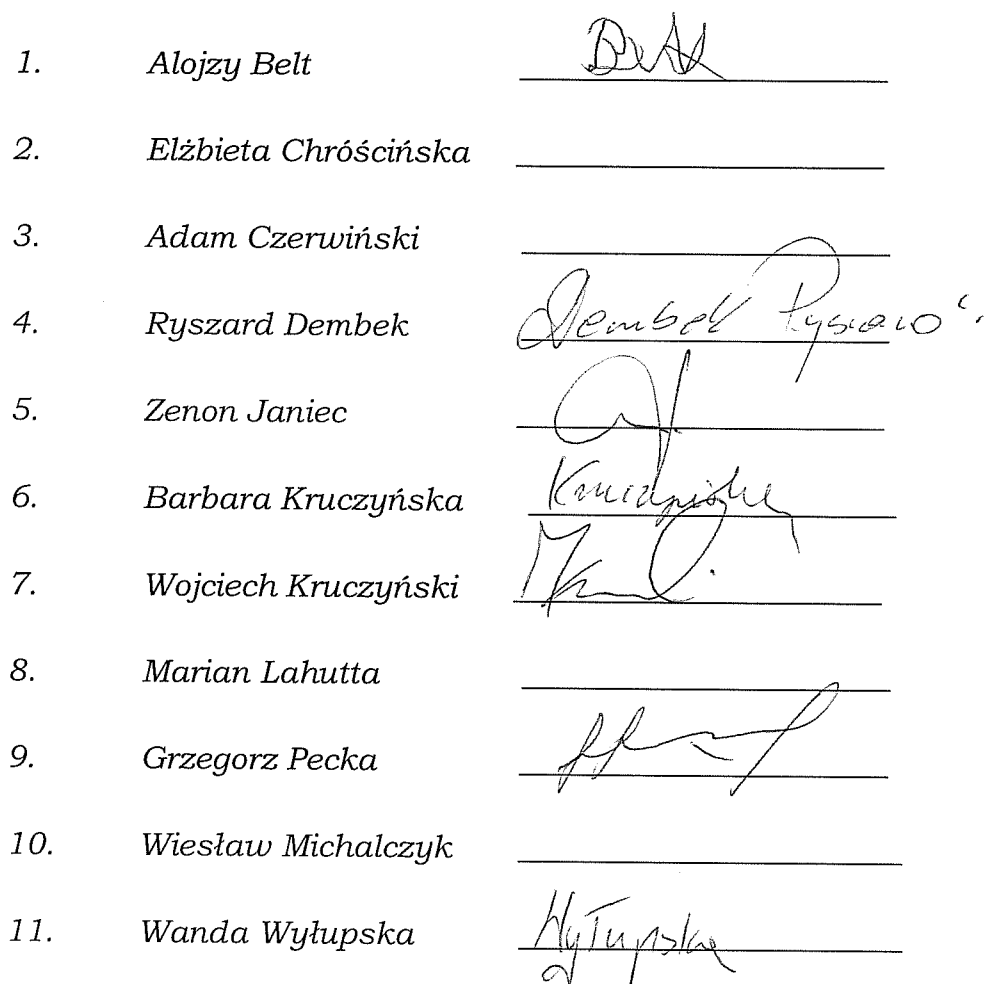 1. Alojzy Belt Belt
2. Elżbieta Chróścińska
3. Adam Czerwiński
4. Ryszard Dembek Dembek Ryszard
5. Zenon Janiec
6. Barbara Kruczyńska
7. Wojciech Kruczyński
8. Marian Lahutta
9. Grzegorz Pecka
10. Wiesław Michalczyk
11. Wanda Wyłupska Wyłupska